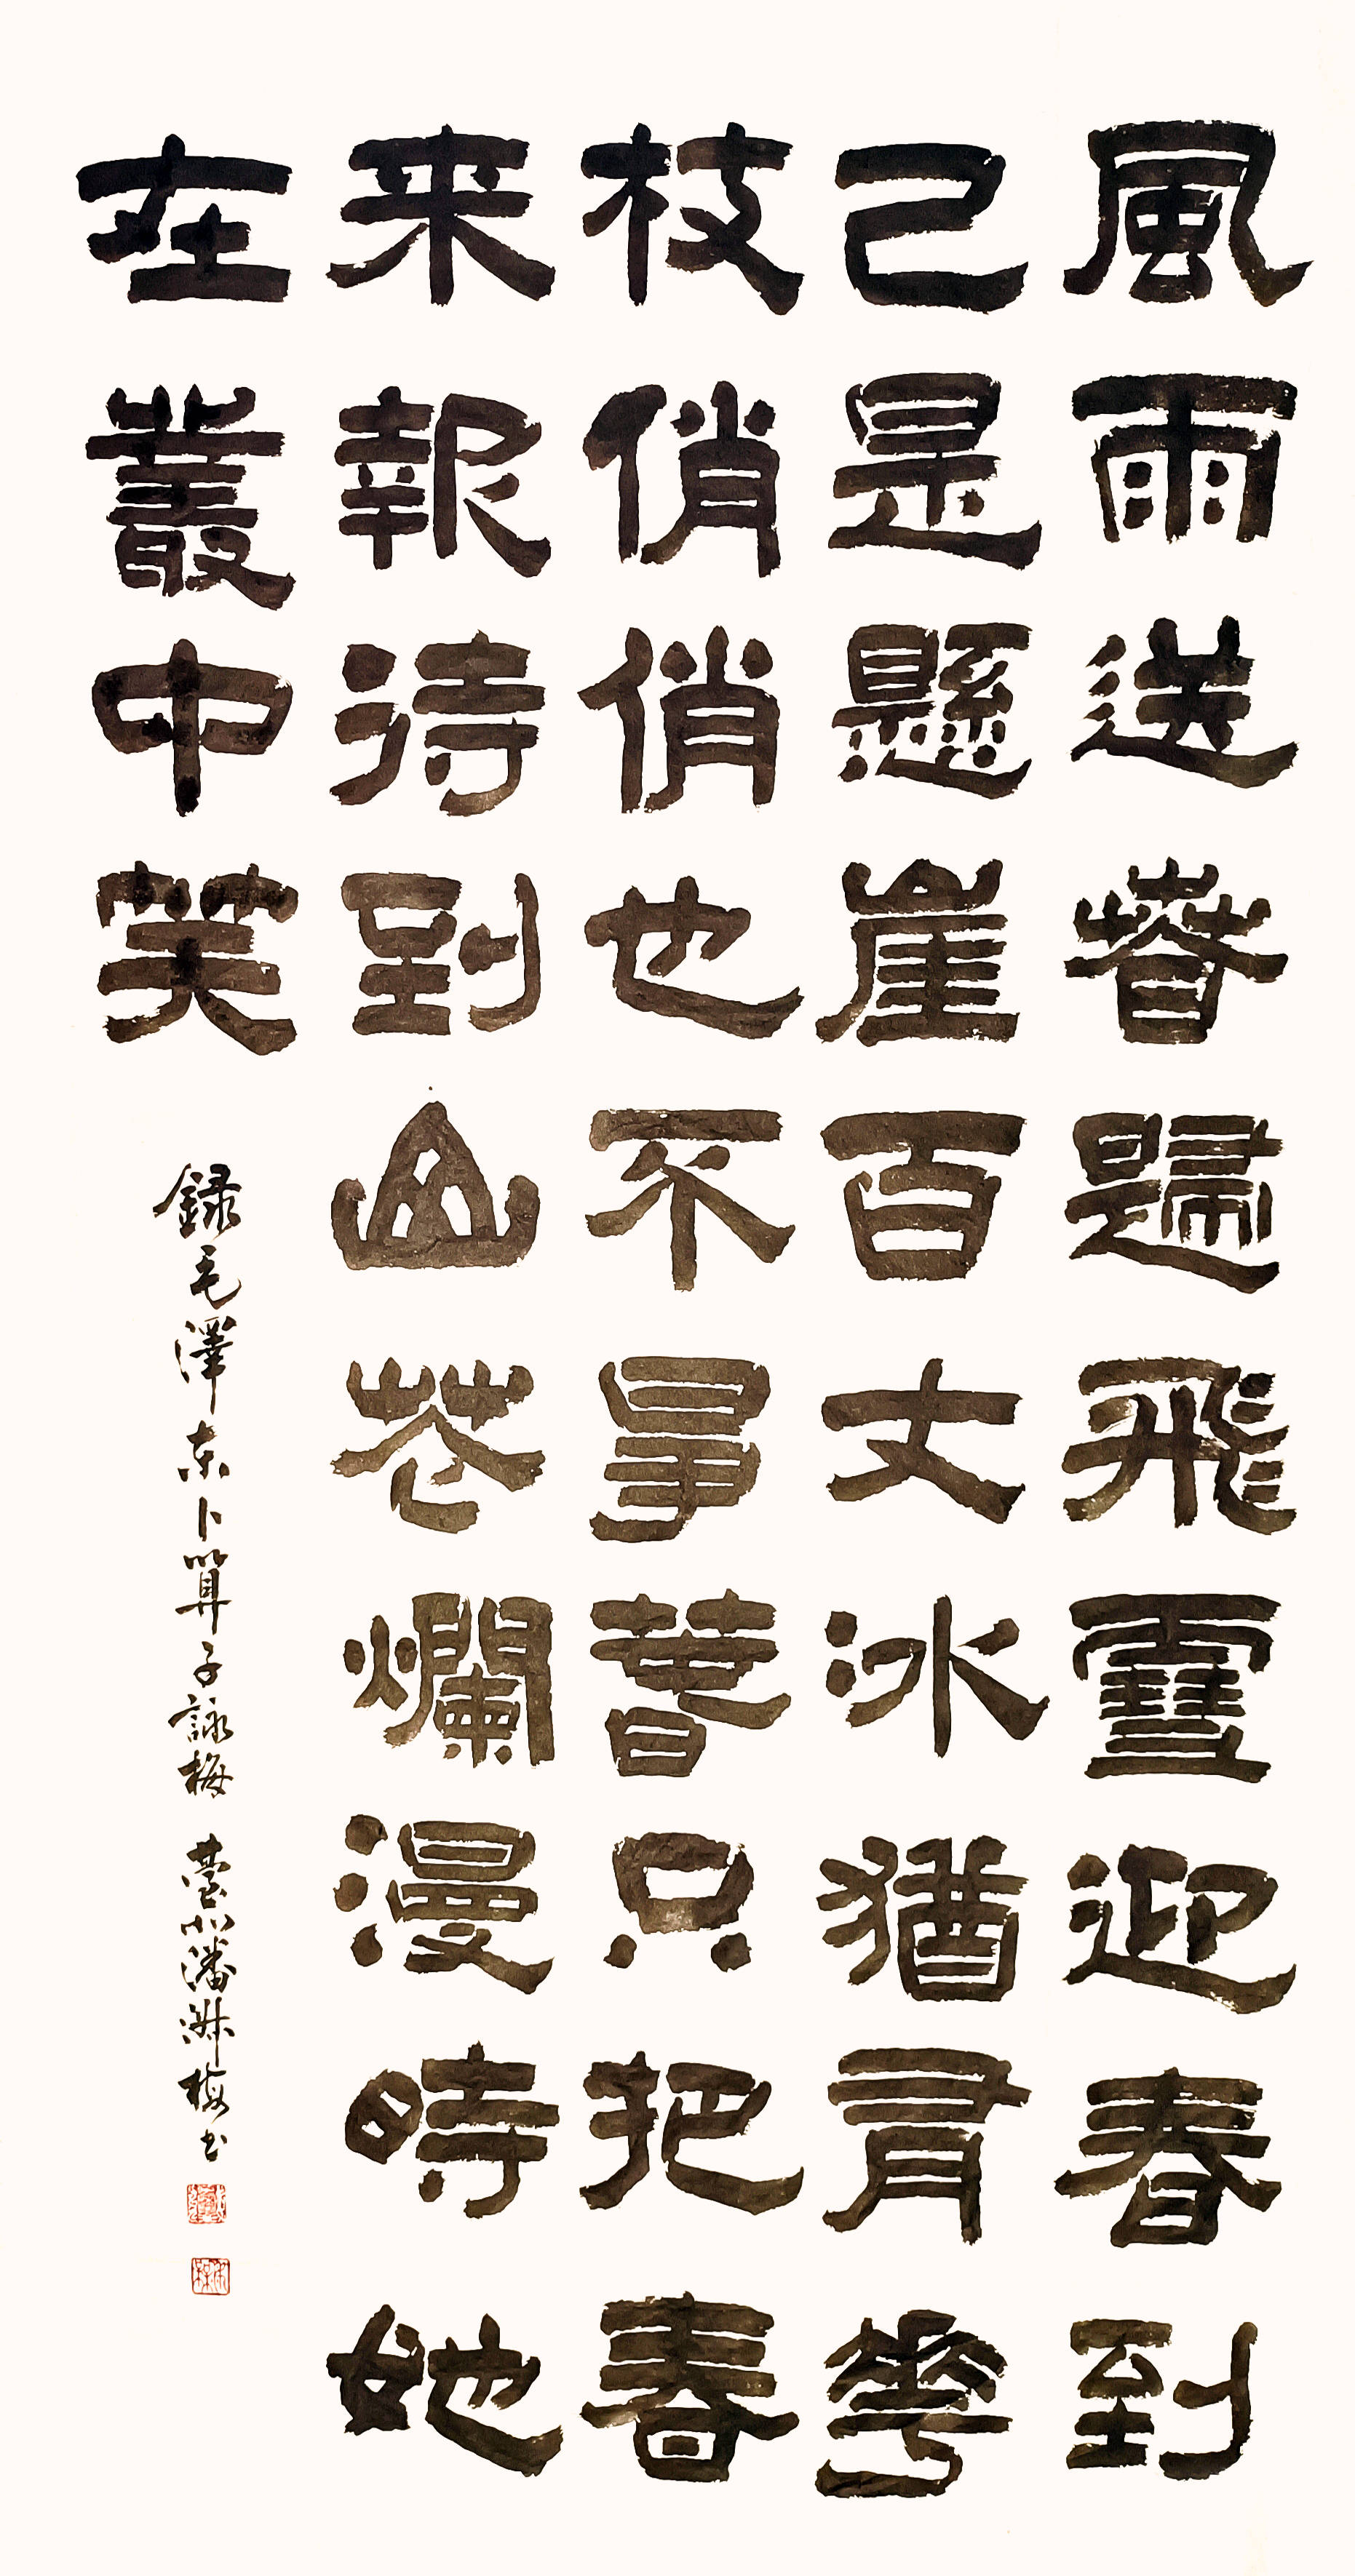 風雨送春歸飛雪迎春到
已是懸崖百丈冰猶有花
枝俏俏也不爭春只把春
来報待到山花爛漫時她
在叢中笑
錄毛澤东卜算子詠梅 臺北潘淋梅书